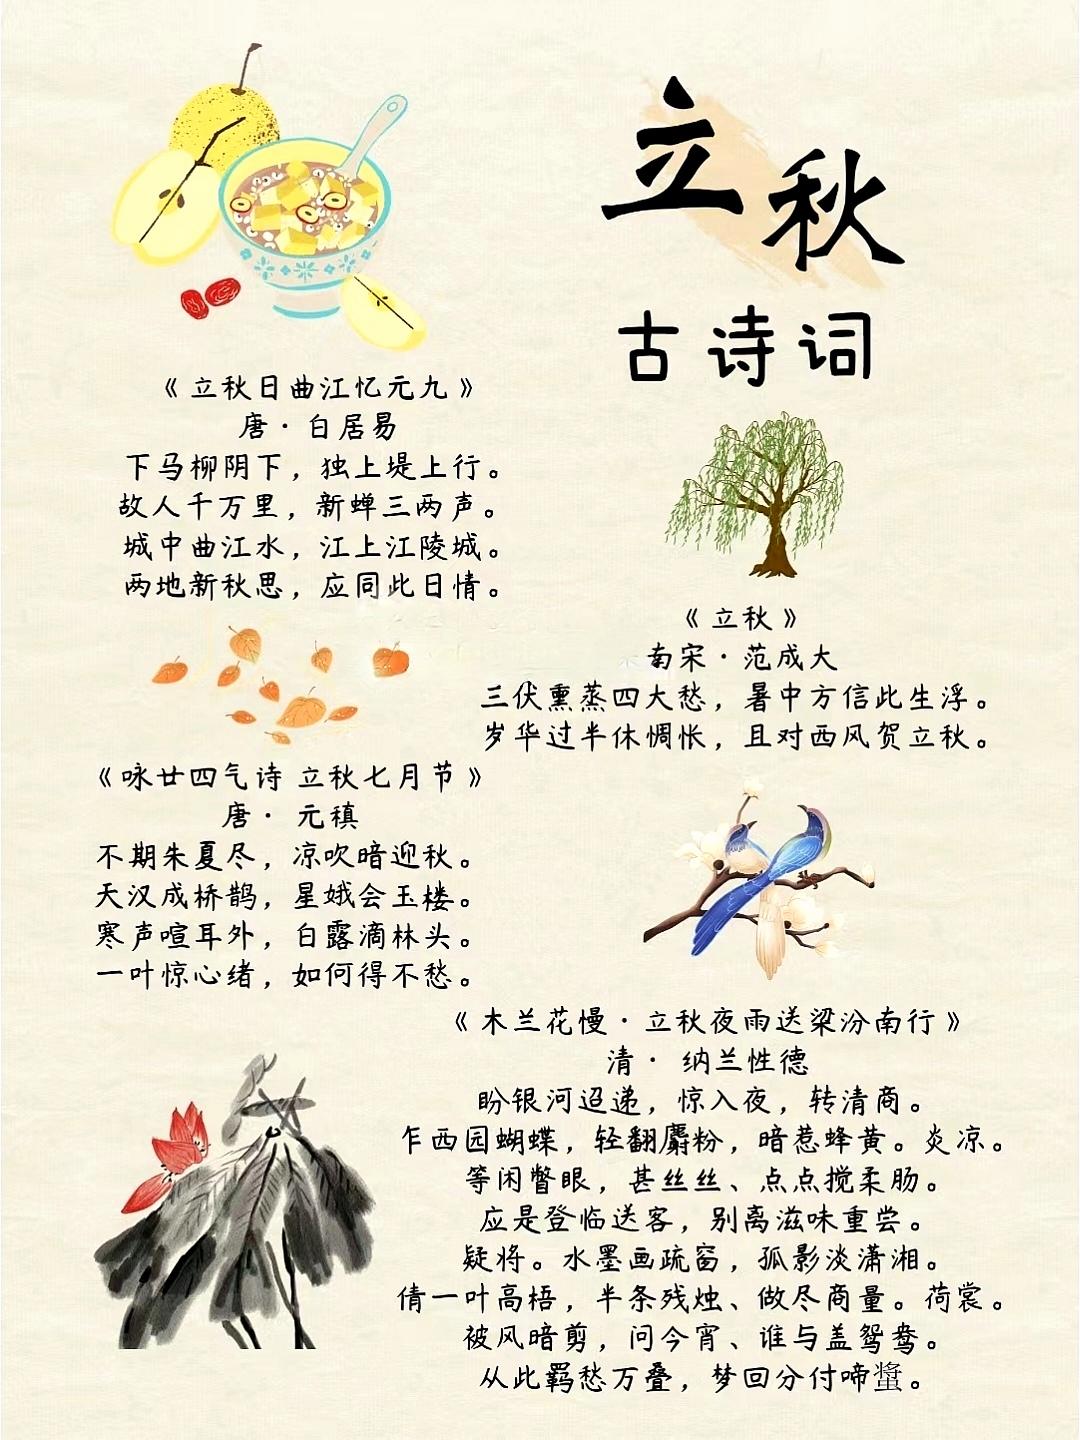 立秋
古诗词
《立秋日曲江忆元九》
唐·白居易
下马柳阴下，独上堤上行。
故人千万里，新蝉三两声。
城中曲江水，江上江陵城。
两地新秋思，应同此日情。
《立秋》
南宋·范成大
三伏熏蒸四大愁，暑中方信此生浮。
岁华过半休惆怅，且对西风贺立秋。
《咏廿四气诗 立秋七月节》
唐· 元稹
不期朱夏尽，凉吹暗迎秋。
天汉成桥鹊，星娥会玉楼。
寒声喧耳外，白露滴林头。
一叶惊心绪，如何得不愁。
《木兰花慢·立秋夜雨送梁汾南行》
清· 纳兰性德
盼银河迢递，惊入夜，转清商。
乍西园蝴蝶，轻翻麝粉，暗惹蜂黄。炎凉。
等闲瞥眼，甚丝丝、点点搅柔肠。
应是登临送客，别离滋味重尝。
疑将。水墨画疏窗，孤影淡潇湘。
倩一叶高梧，半条残烛、做尽商量。荷裳。
被风暗剪，问今宵、谁与盖鸳鸯。
从此羁愁万叠，梦回分付啼螀。